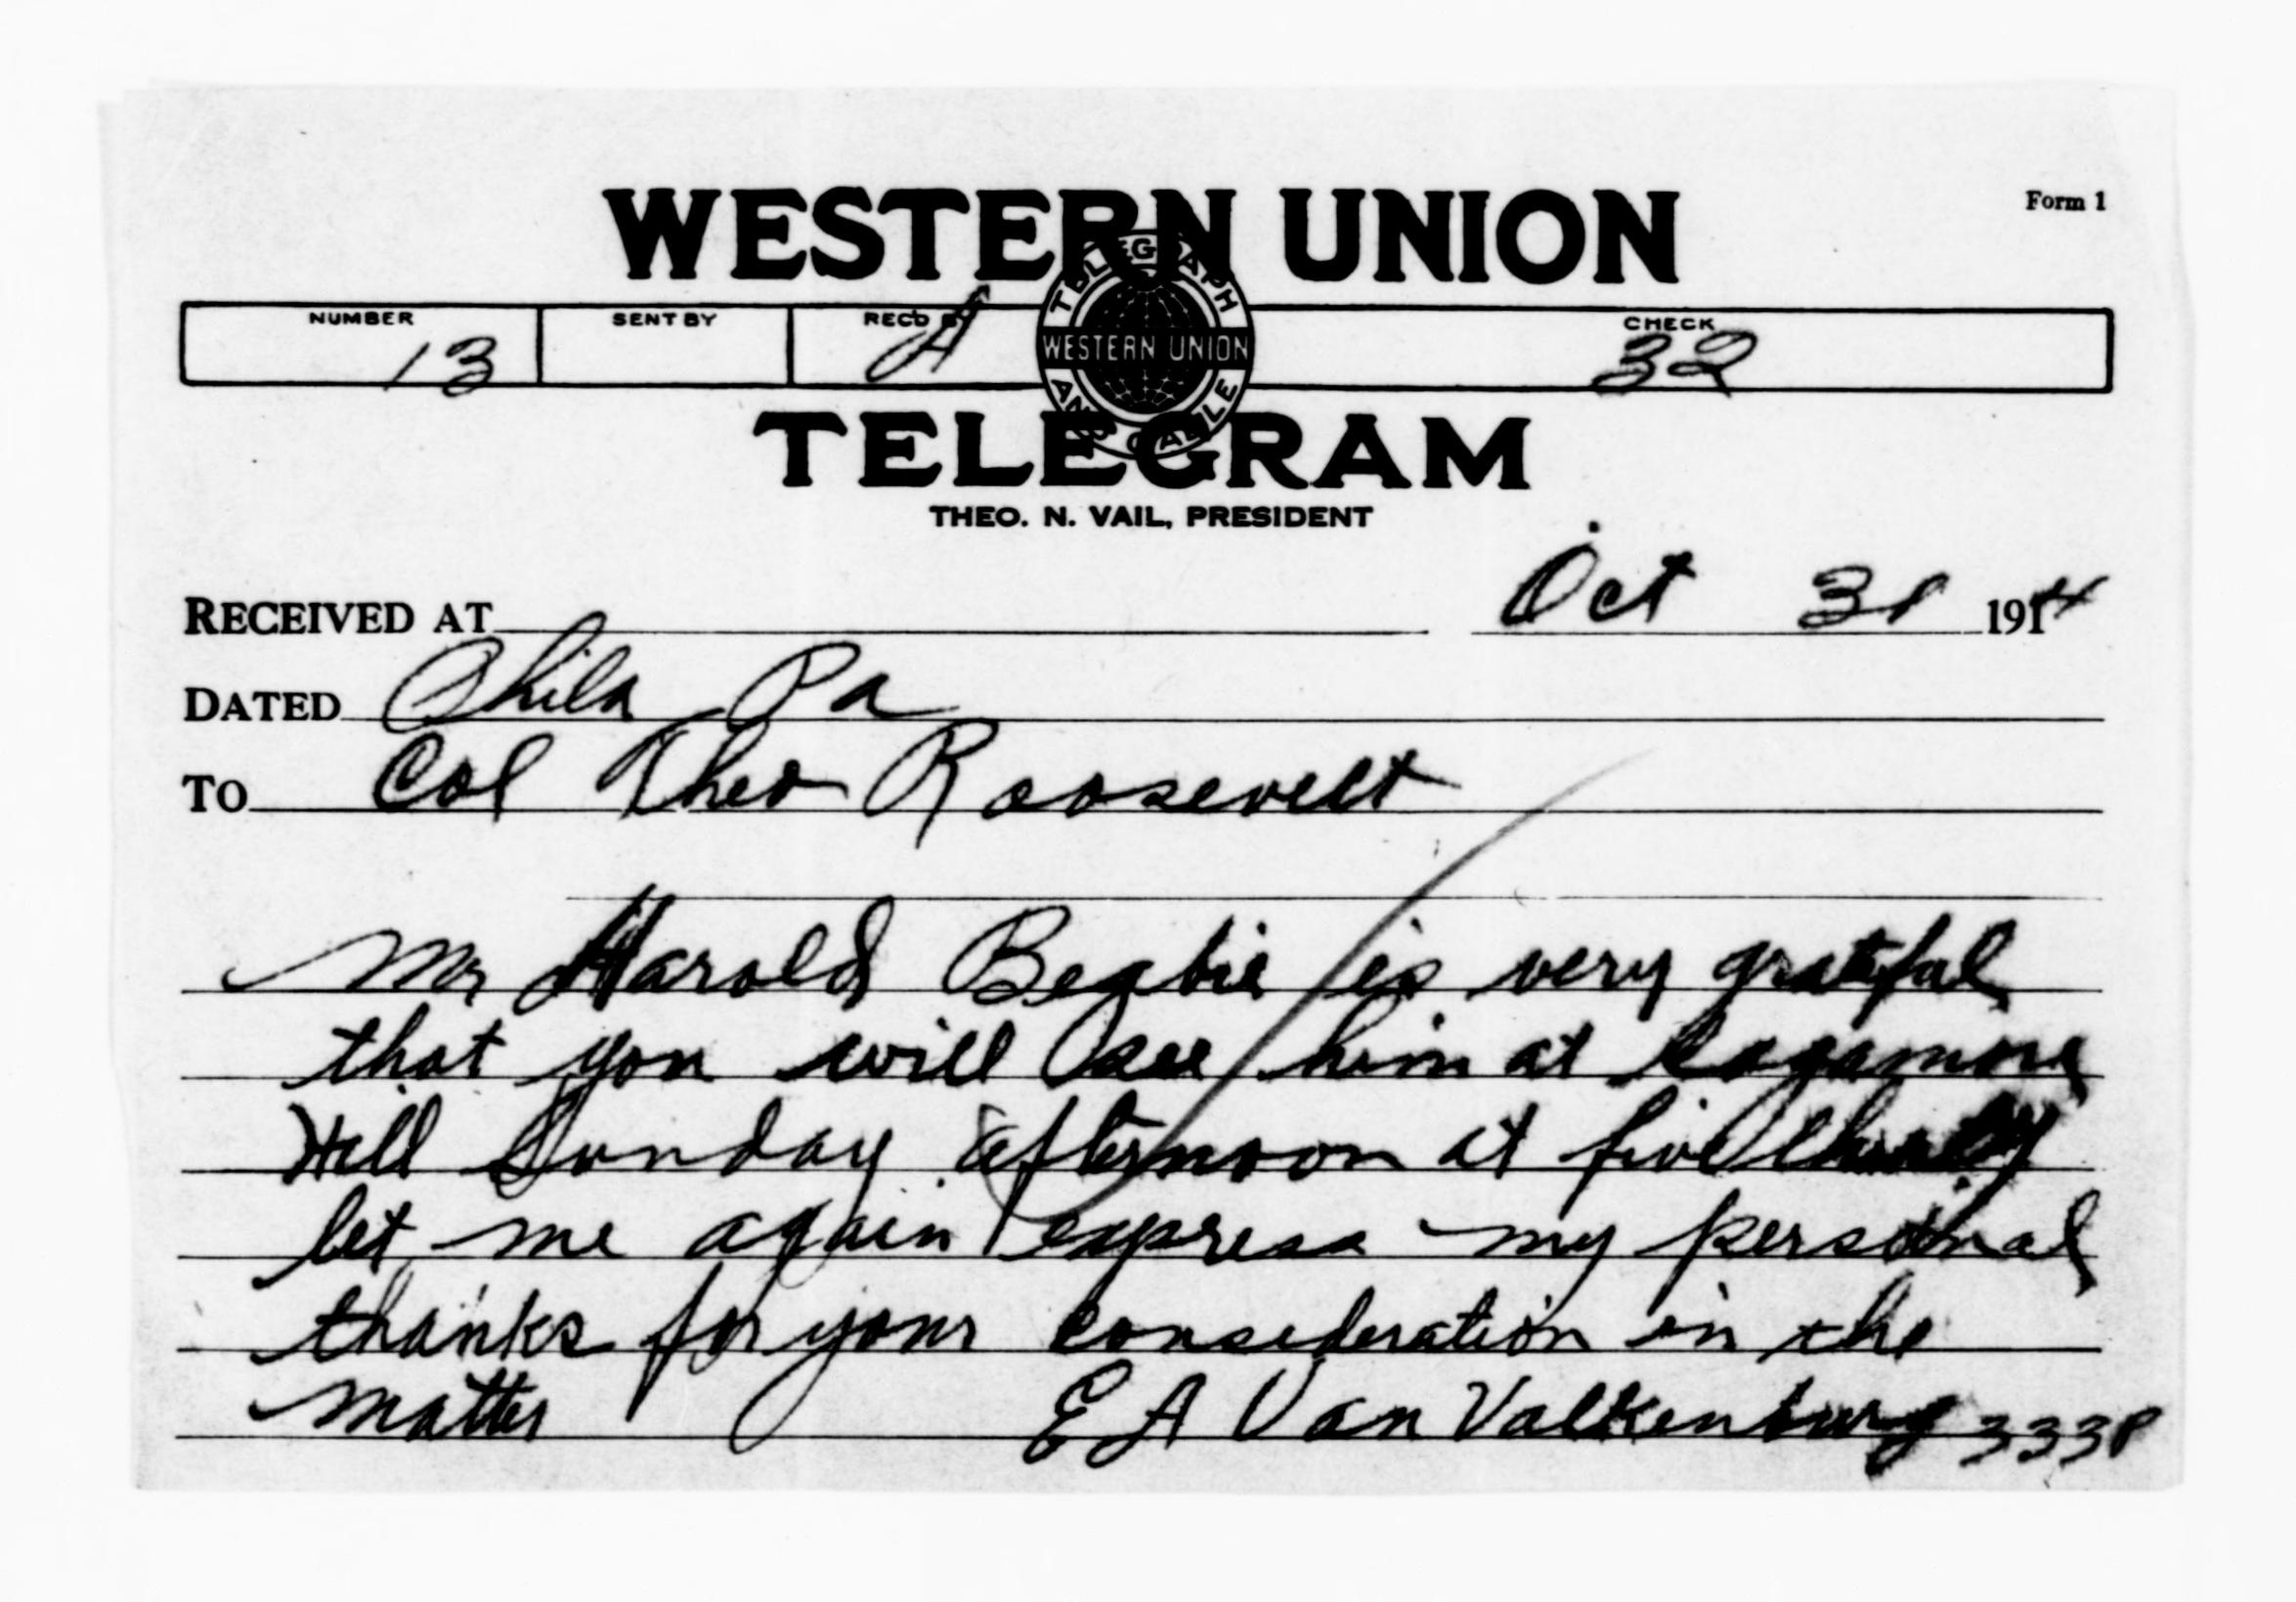 WESTERN UNION
Form 1
NUMBER SENT BY REC'D BY CHECK
13 A 32
TELEGRAPH AND CABLE
WESTERN UNION
TELEGRAM
THEO. N. VAIL, PRESIDENT
RECEIVED AT Oct 31 1914
DATED Phila Pa
TO Col Theo Roosevelt
Mr Harold Begbie is very grateful
that you will see him at Sagamore
Hill Sunday afternoon at five thirty
let me again express my personal
thanks for your consideration in the
matter E A Van Valkenburg 333P